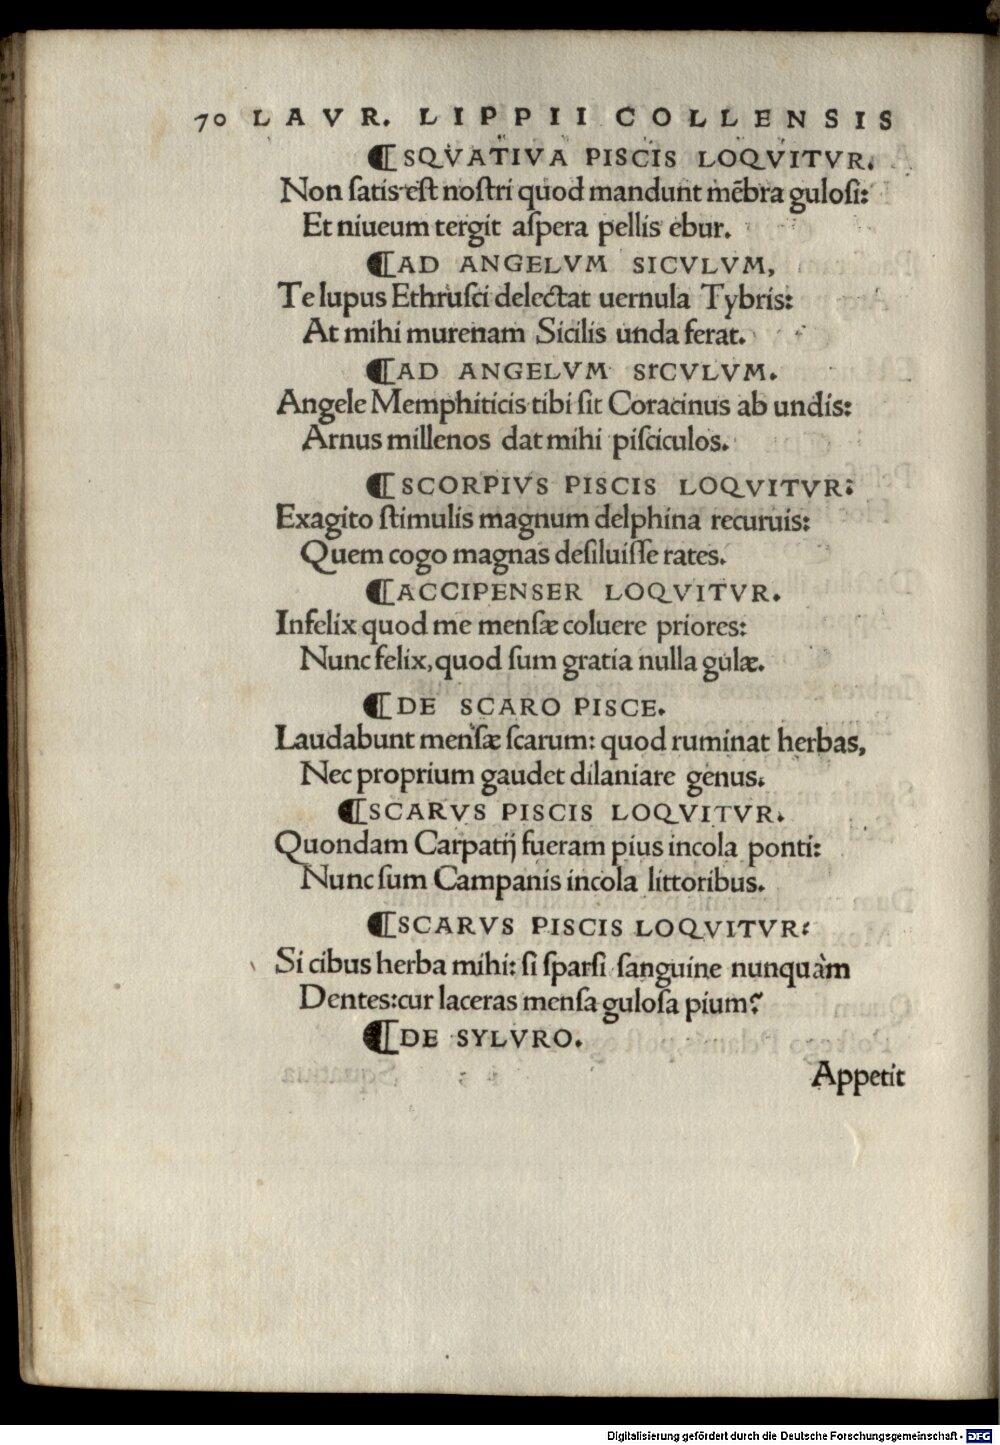 70 LAVR. LIPPII COLLENSIS
¶SQVATIVA PISCIS LOQVITVR.
Non ſatis eſt noſtri quod mandunt mẽbra guloſi:
Et niueum tergit aſpera pellis ebur.
¶AD ANGELVM SICVLVM,
Te lupus Ethruſci delectat uernula Tybris:
At mihi murenam Sicilis unda ferat.
¶AD ANGELVM SICVLVM.
Angele Memphiticis tibi ſit Coracinus ab undis:
Arnus millenos dat mihi piſciculos.
¶SCORPIVS PISCIS LOQVITVR:
Exagito ſtimulis magnum delphina recuruis:
Quem cogo magnas deſiluiſſe rates.
¶ACCIPENSER LOQVITVR.
Infelix quod me menſæ coluere priores:
Nunc felix, quod ſum gratia nulla gulæ.
¶DE SCARO PISCE.
Laudabunt menſæ ſcarum: quod ruminat herbas,
Nec proprium gaudet dilaniare genus.
¶SCARVS PISCIS LOQVITVR.
Quondam Carpatij fueram pius incola ponti:
Nunc ſum Campanis incola littoribus.
¶SCARVS PISCIS LOQVITVR:
Si cibus herba mihi: ſi ſparſi ſanguine nunquàm
Dentes: cur laceras menſa guloſa pium?
¶DE SYLVRO.
Appetit
Digitalisierung gefördert durch die Deutsche Forschungsgemeinschaft - DFG